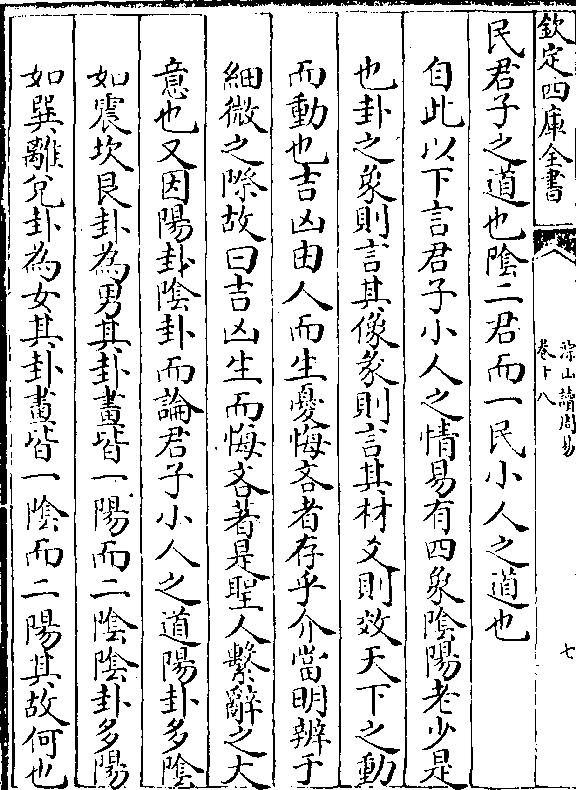 欽定四庫全書
深山讀周易
卷十八
七
民君子之道也陰二君而一民小人之道也
自此以下言君子小人之情易有四象陰陽老少是
也卦之象則言其像彖則言其材爻則效天下之動
而動也吉凶由人而生憂悔吝者存乎介當明辨于
細微之際故曰吉凶生而悔吝著是聖人繫辭之大
意也又因陽卦陰卦而論君子小人之道陽卦多陰
如震坎艮卦為男其卦畫皆一陽而二陰陰卦多陽
如巽離兌卦為女其卦畫皆一陰而二陽其故何也